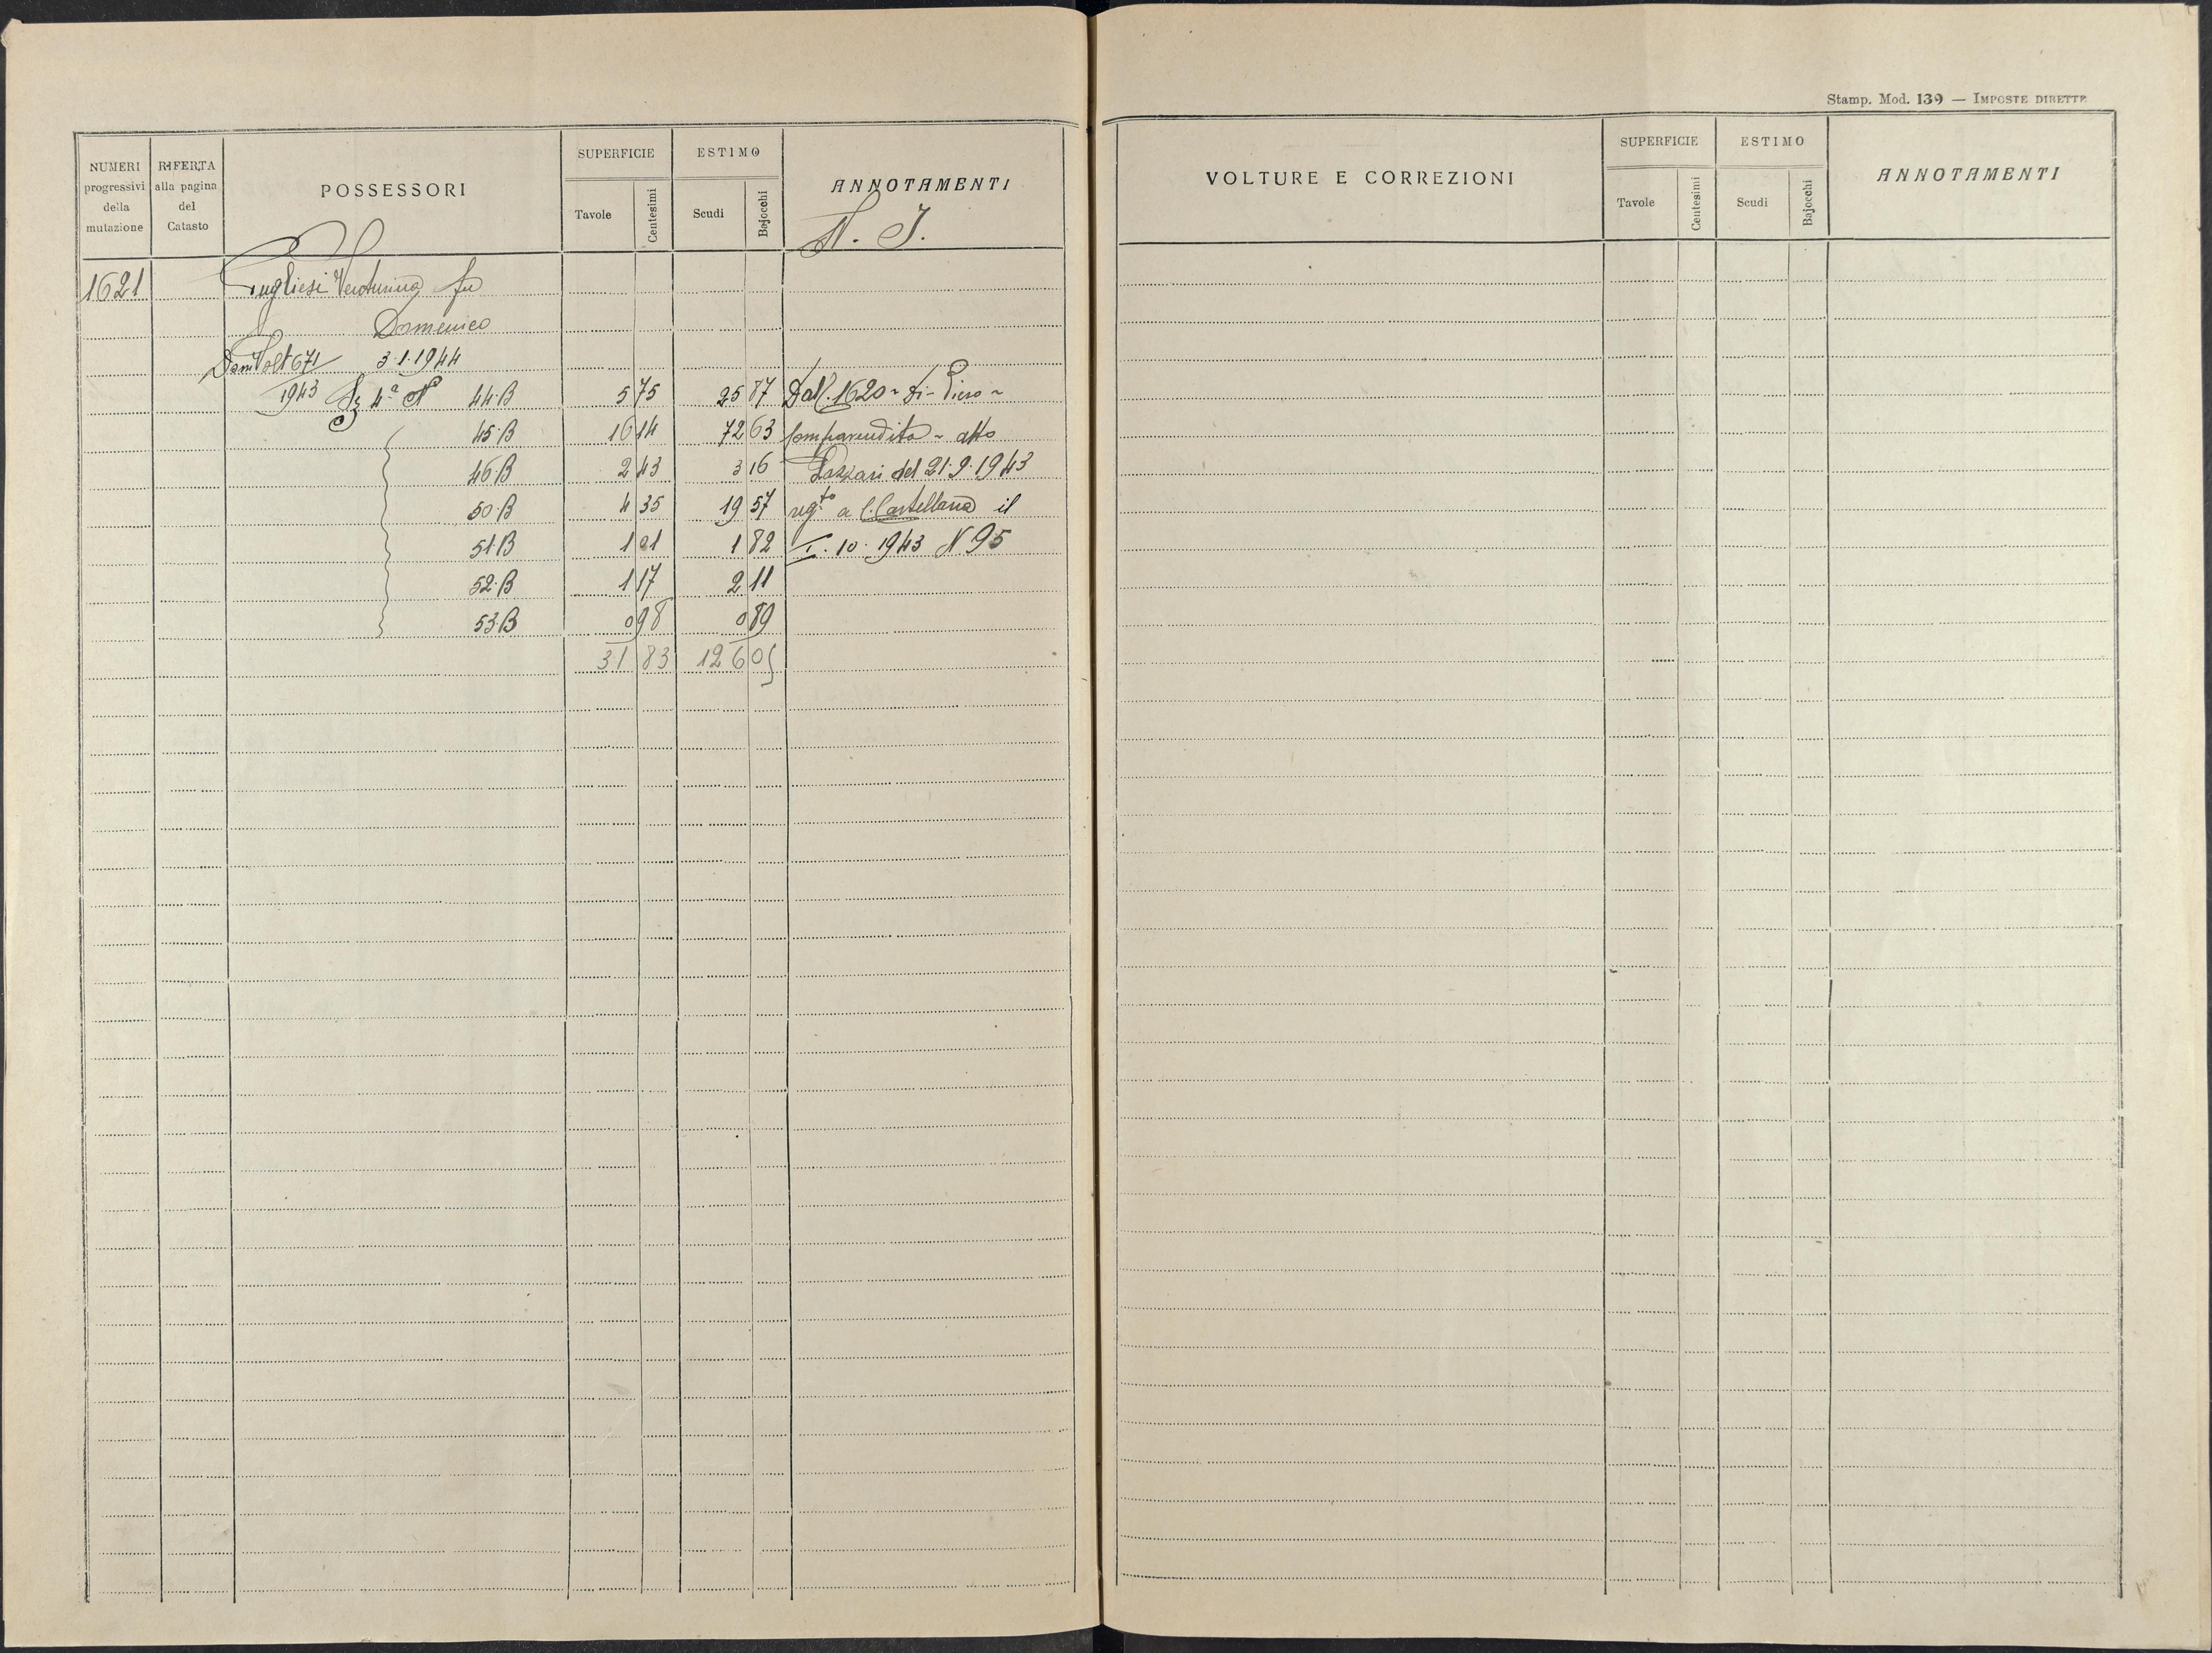 Stamp. Mod. 139 — IMPOSTE DIRETTE
NUMERI progressivi della mutazione | RIFERTA alla pagina del Catasto | POSSESSORI | SUPERFICIE Tavole Centesimi | ESTIMO Scudi Bajocchi | ANNOTAMENTI
VOLTURE E CORREZIONI | SUPERFICIE Tavole Centesimi | ESTIMO Scudi Bajocchi | ANNOTAMENTI
1621 Pugliesi Venturina fu
Domenico
Volt 671 3.1.1944
1943 Sz 4ª N 44.B 5 75 25 87 Dall. 1620 ~ Di- Piero ~
45.B 16 14 72 63 Compravendita ~ atto
46.B 2 43 3 16 Lazzari del 21.9.1943
50.B 4 35 19 57 reg.to a C. Castellana il
51.B 1 01 1 82 I. 10. 1943 N 95
52.B 1 17 2 11
53.B 0 98 0 89
31 83 126 05